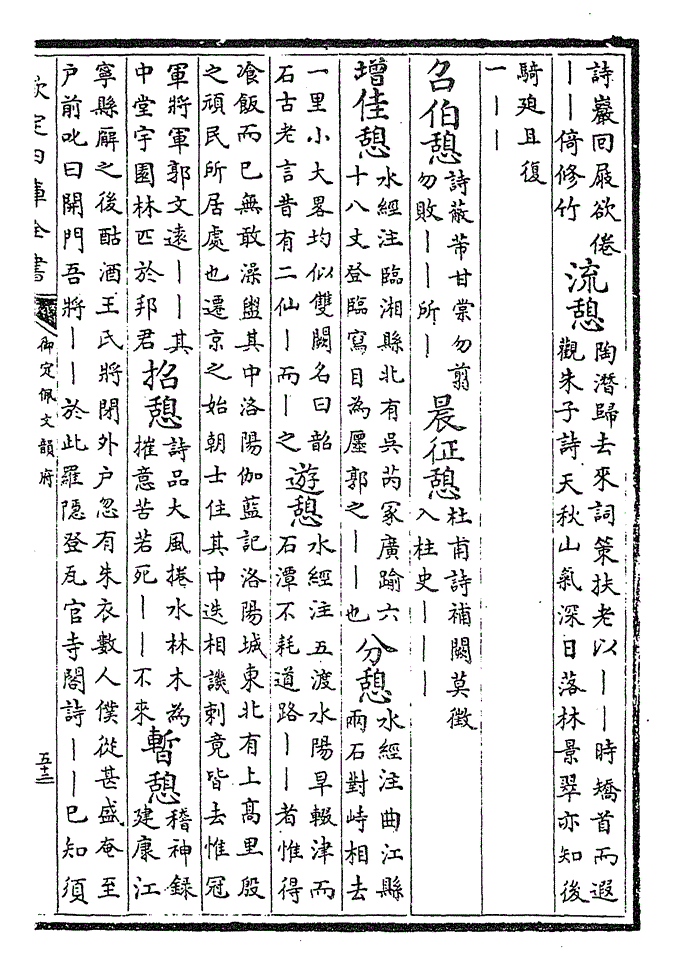 詩巖回屐欲倦
——倚修竹
流憩
陶潛歸去來詞策扶老以——時矯首而遐
觀朱子詩天秋山氣深日落林景翠亦知後
騎廹且復
一——
召伯憩
詩蔽芾甘棠勿翦
勿敗——所—
晨征憩
杜甫詩補闕莫徵
入柱史———
增佳憩
水經注臨湘縣北有吳芮冢廣踰六
十八丈登臨寫目為廛郭之——也
分憩
水經注曲江縣
兩石對峙相去
一里小大畧均似雙闕名曰韶
石古老言昔有二仙—而—之
遊憩
水經注五渡水陽旱輟津而
石潭不耗道路——者惟得
飡飯而已無敢澡盥其中洛陽伽藍記洛陽城東北有上高里殷
之頑民所居處也遷京之始朝士住其中迭相譏刺竟皆去惟冠
軍將軍郭文遠——其
中堂宇園林匹於邦君
招憩
詩品大風捲水林木為
摧意苦若死——不來
暫憩
稽神録
建康江
寧縣廨之後酤酒王氏將閉外户忽有朱衣數人僕從甚盛奄至
户前叱曰開門吾將——於此羅隱登瓦官寺閣詩——已知須
欽定四庫全書
御定佩文韻府
五十三